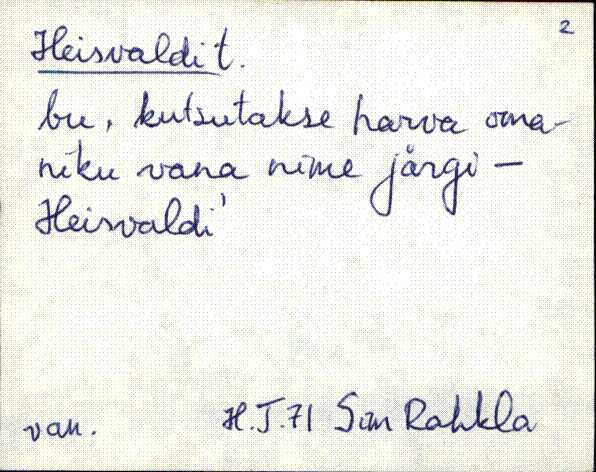 2
Heisvaldi t.
bu, kutsutakse harva oma-
niku vana nime järgi –
Heisvaldi'
van. H.J.71 Sim Rahkla